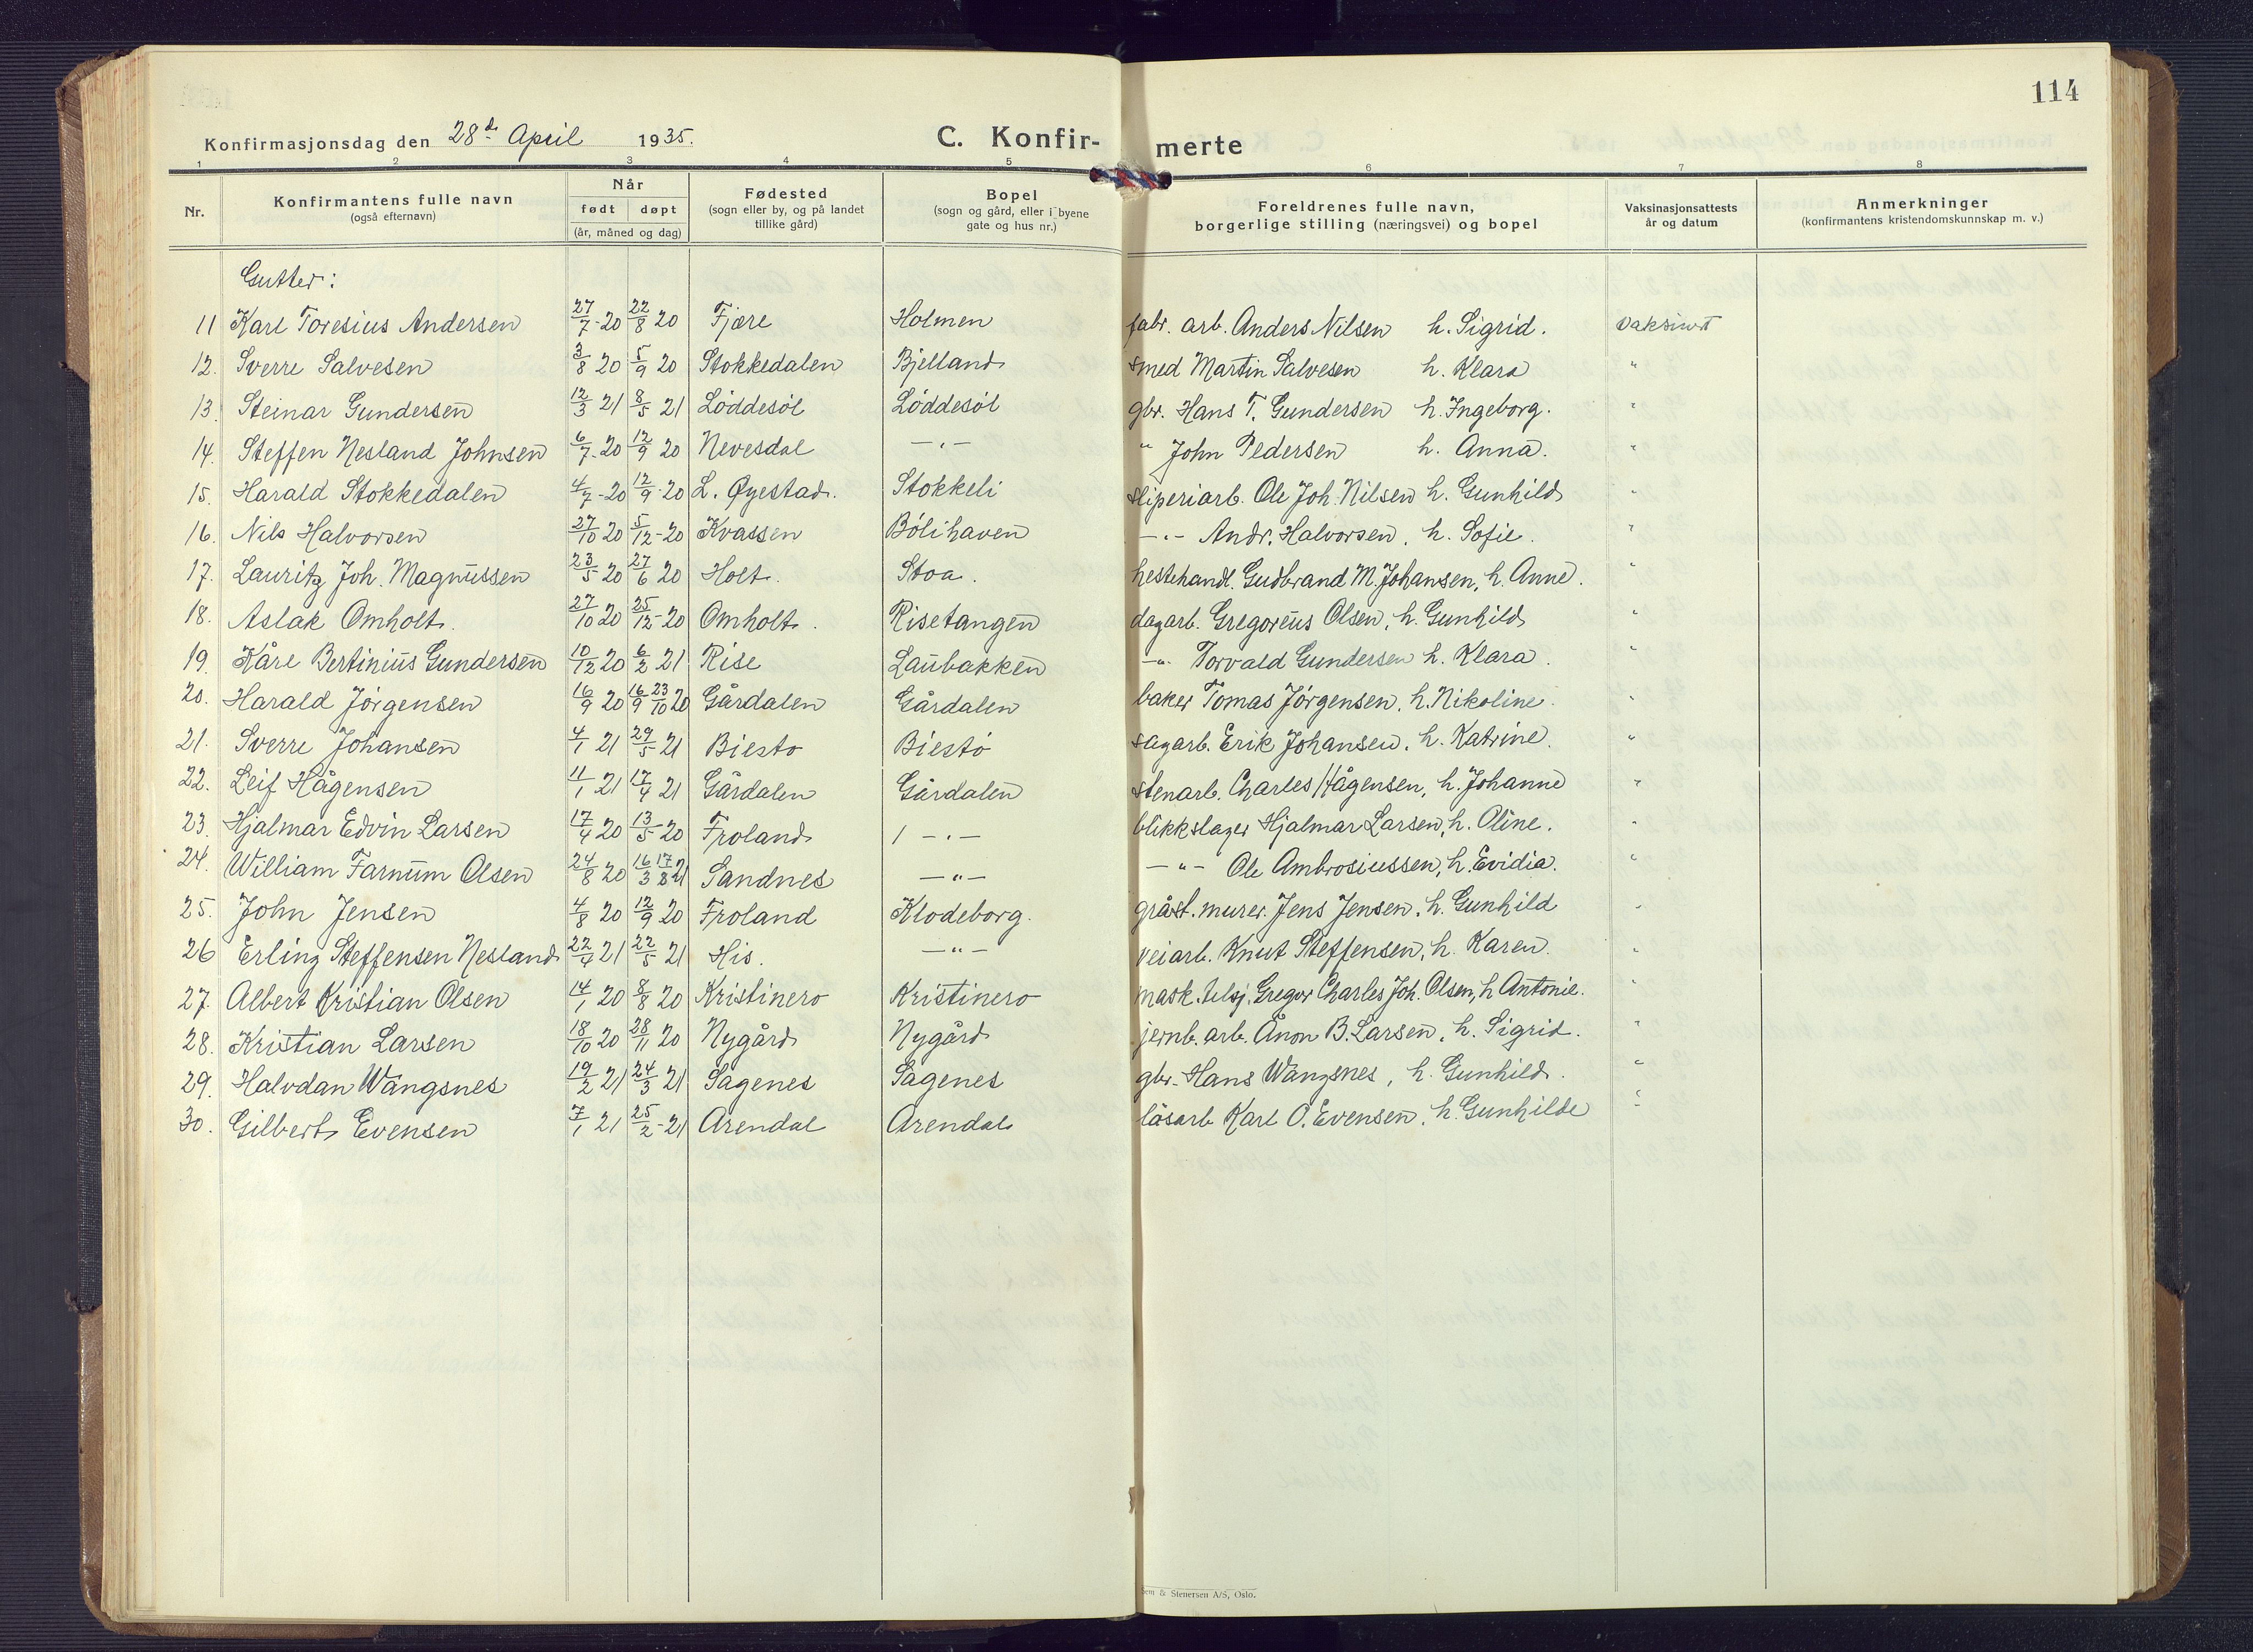 114
Konfirmasjonsdag den 28de April 1935. C. Konfir- merte
1 2 3 4 5 6 7 8
Nr. Konfirmantens fulle navn (også efternavn) Når født døpt (år, måned og dag) Fødested (sogn eller by, og på landet tillike gård) Bopel (sogn og gård, eller i byene gate og hus nr.) Foreldrenes fulle navn, borgerlige stilling (næringsvei) og bopel Vaksinasjonsattests år og datum Anmerkninger (konfirmantens kristendomskunnskap m. v.)
Gutter:
11 Karl Toresius Andersen 27/7-20 22/8 20 Fjære Holmen fabr. arb. Anders Nilsen h. Sigrid. vaksinert
12. Sverre Salvesen 3/8 20 5/9 20 Stokkedalen Bjelland smed Martin Salvesen h. Klara "
13. Steinar Gundersen 12/3 21 8/5 21 Løddesøl Løddesøl gbr. Hans T. Gundersen h. Ingeborg. "
14. Steffen Nesland Johnsen 6/7-20 12/9 20 Nevesdal -"- " John Pedersen h. Anna. "
15. Harald Stokkedalen 4/7-20 12/9-20 L. Øyestad. Stokkeli sliperiarb. Ole Joh. Nilsen h. Gunhild "
16. Nils Halvorsen 27/10 20 5/12-20 Kvassen Bölihaven -"- Andr. Halvorsen, h. Sofie. "
17. Lauritz Joh. Magnussen 23/5 20 27/6 20 Holt. Stoa. hestehandl. Gudbrand M. Johansen, h. Anne. "
18. Aslak Omholt. 27/10 20 25/12-20 Omholt. Risetangen dagarb. Gregoreus Olsen, h. Gunhild "
19. Kåre Bertinius Gundersen 10/12 20 6/2 21 Rise Laubakken -"- Torvald Gundersen h. Klara. "
20. Harald Jørgensen 16/9 20 16/9 23/10 20 Gårdalen Gårdalen baker Tomas Jørgensen, h. Nikoline. "
21. Sverre Johansen 4/1 21 29/5 21 Biestø Biestø sagarb. Erik Johansen, h. Katrine. "
22. Leif Hågensen 11/1 21 17/4 21 Gårdalen Gårdalen stenarb. Charles Hågensen, h. Johanne "
23. Hjalmar Edvin Larsen 17/4 20 13/5-20 Froland -"- blikkslager Hjalmar Larsen, h. Oline. "
24. William Farnum Olsen 24/8 20 16/3 17/8 21 Sandnes -"- -"- Ole Ambrosiussen, h. Evidia. "
25. John Jensen 4/8 20 12/9 20 Froland Klodeborg. gråst. murer. Jens Jensen, h. Gunhild "
26 Erling Steffensen Nesland 22/4 21 22/5 21 His. -"- veiarb. Knut Steffensen, h. Karen. "
27. Albert Kristian Olsen 14/1 20 8/8 20 Kristinero Kristinero mask. Gregor Charles Joh. Olsen, h Antonie. "
28. Kristian Larsen 18/10 20 28/11 20 Nygård Nygård jernb. arb. Ånon B. Larsen, h. Sigrid. "
29. Halvdan Wangsnes 19/2 21 24/3 21 Sagenes Sagenes gbr. Hans Wangsnes, h. Gunhild. "
30. Gilbert Evensen 7/1 21 25/2-21 Arendal Arendal låsarb Karl O. Evensen, h. Gunhilde "
Sem & Stenersen A/S, Oslo.